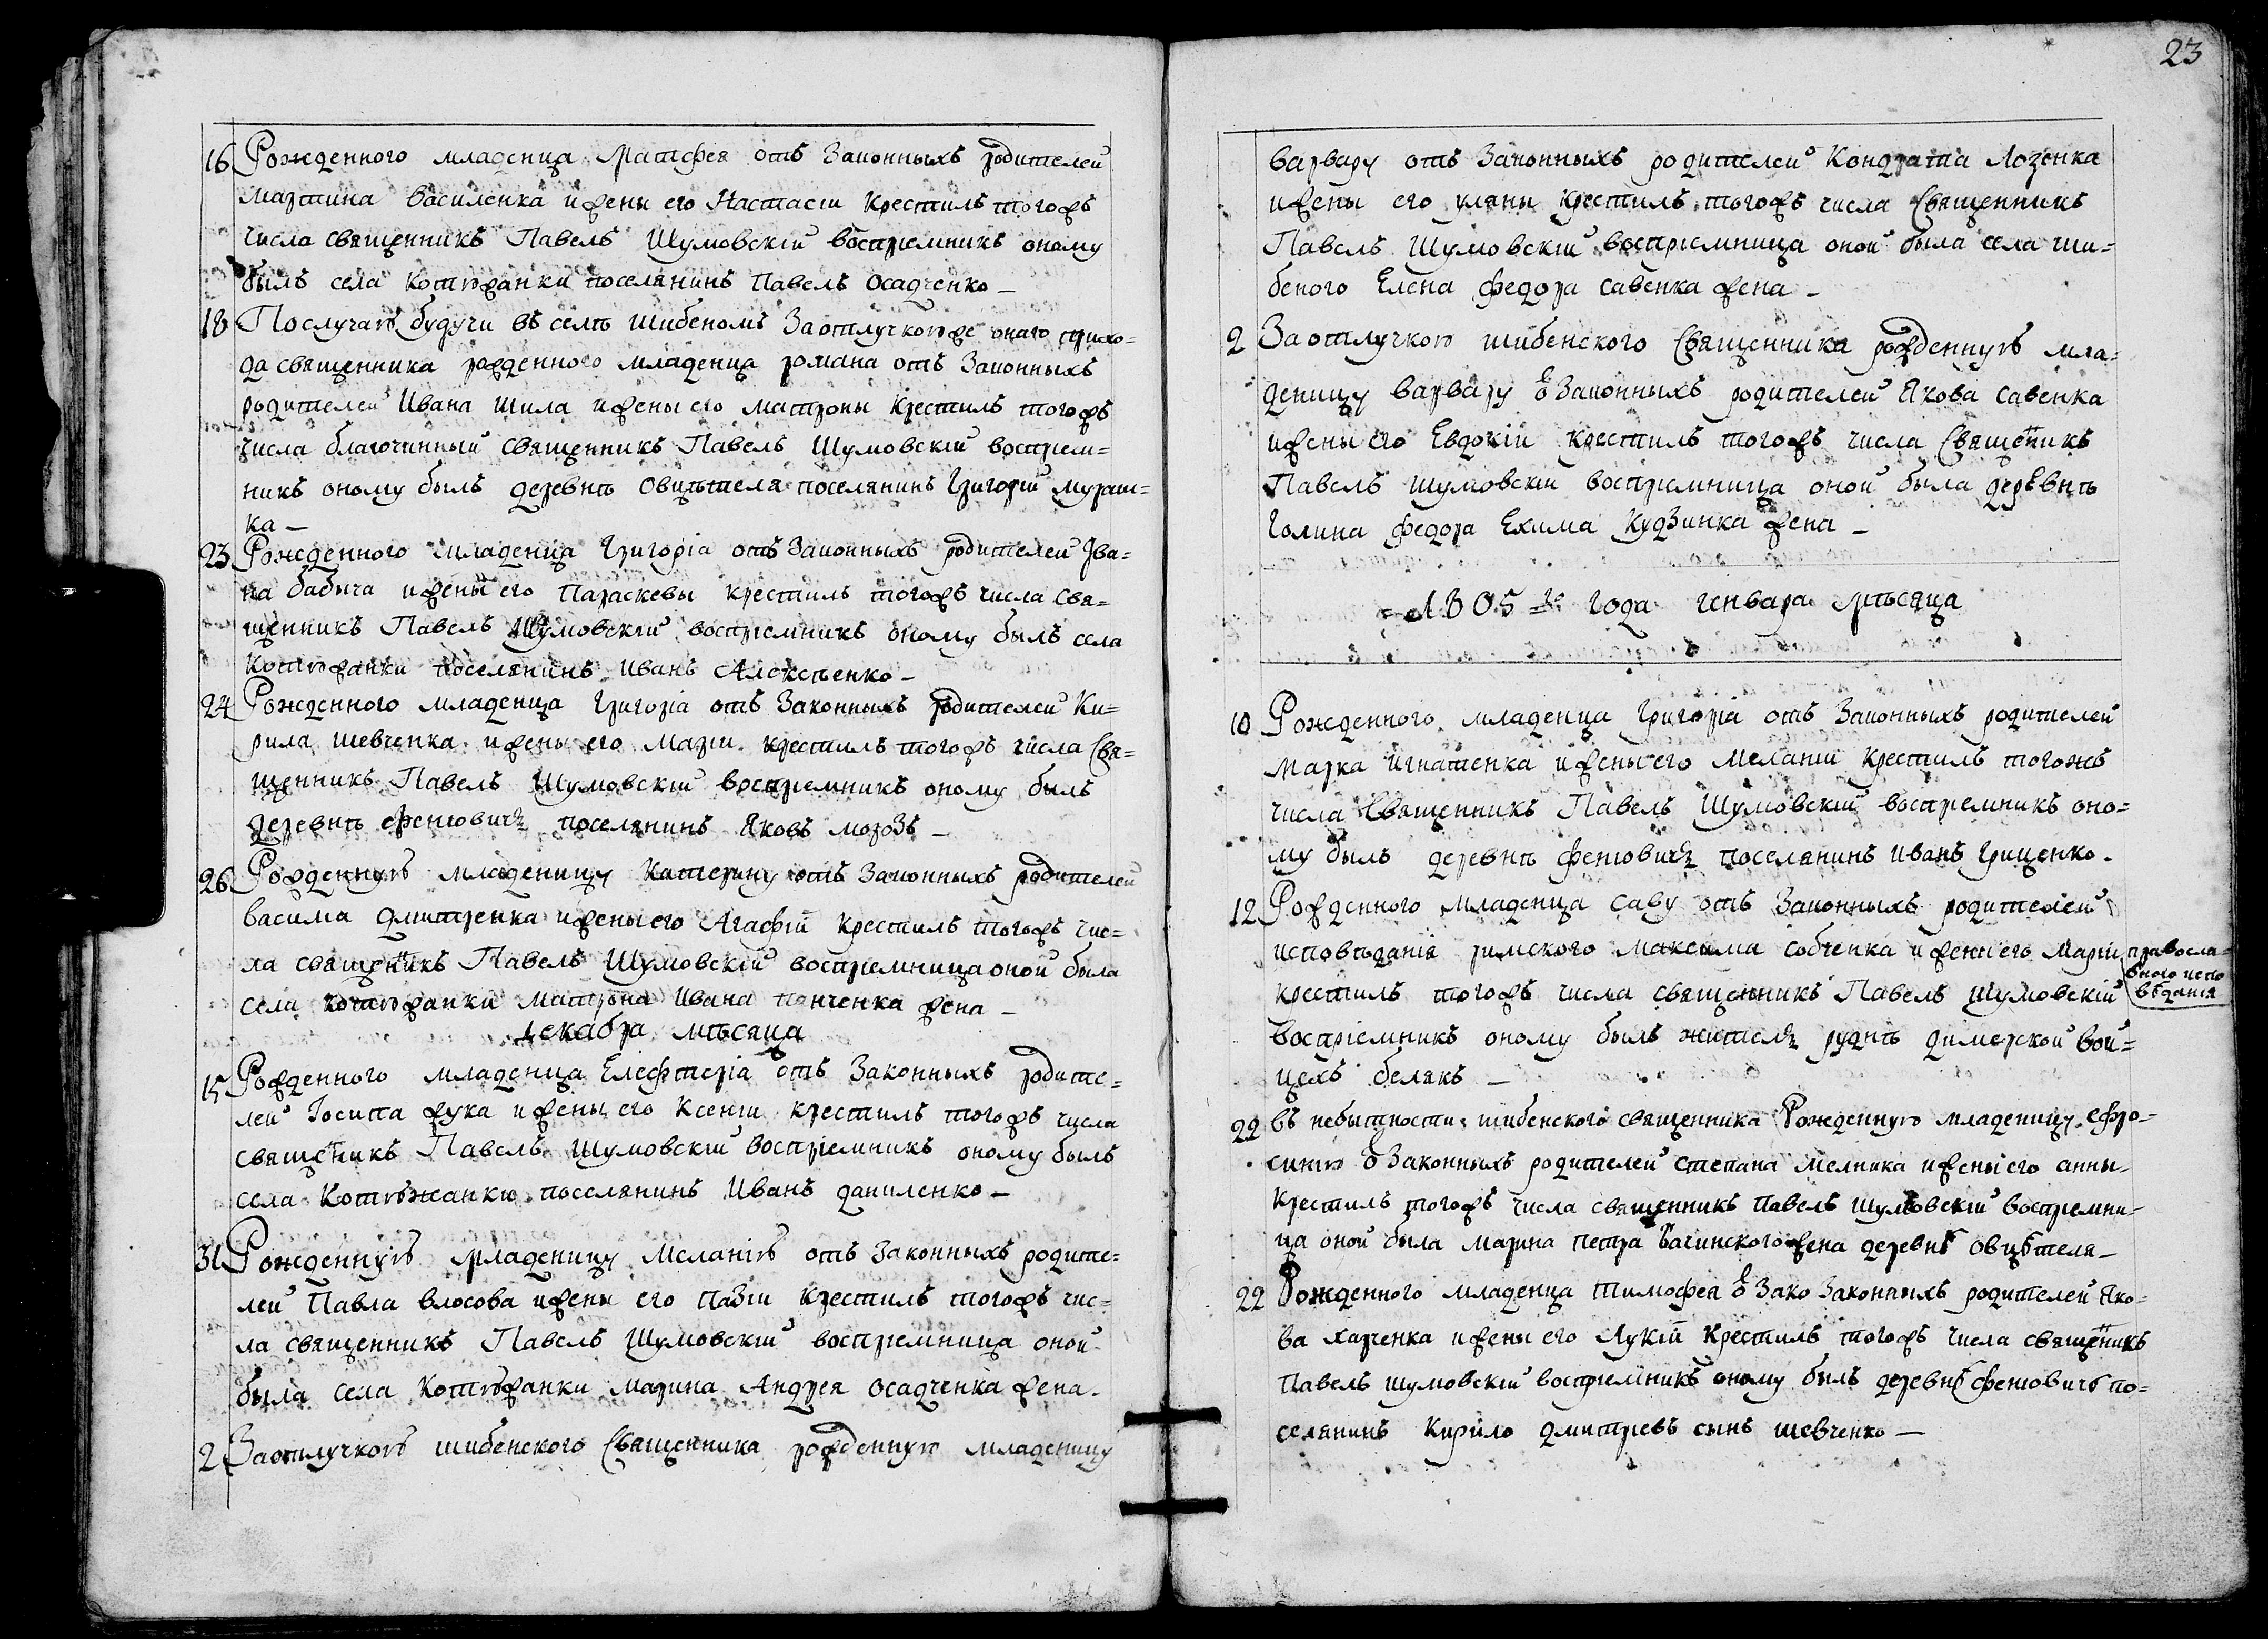 16 Рожденного младенца Матфея отъ Законныхъ родителей
Мартина Василенка и жены его Настасіи крестилъ тогожъ
числа священникъ Павелъ Шумовскій воспріемникъ оному
былъ села Котюжанки поселянинъ Павелъ Осадченко —
18 По случаю будучи въ селѣ Шибеномъ За отлучкоюже онаго прихо=
да священника рожденного младенца романа отъ Законныхъ
родителей Ивана Шила и жены его Матроны крестилъ тогожъ
числа благочинный священникъ Павелъ Шумовскій воспріем=
никъ оному былъ деревнѣ Овиѣтеля поселянинъ Григорій Мураш=
ка —
23 Рожденного младенца Григоріа отъ Законныхъ родителей Ива=
на бабича и жены его Параскевы крестилъ тогожъ числа Свя=
щенникъ Павелъ Шумовскій воспріемникъ оному былъ села
Котюжанки поселянинъ Иванъ Алексѣенко —
24 Рожденного младенца Григоріа отъ Законныхъ родителей Ки=
рила шевченка и жены его Маріи крестилъ тогожъ числа Свя=
щенникъ Павелъ Шумовскій воспріемникъ оному былъ
деревнѣ Феневичъ поселянинъ Яковъ морозъ —
26 Рожденную младеницу Катерину отъ Законныхъ родителей
василиа дмитренка и жены его Агафіи крестилъ тогожъ чис=
ла священикъ Павелъ Шумовскій воспріемница оной была
села котюжанки матрона Ивана панченка жена —
Декабра мѣсяца
15 Рожденного младенца Елефтеріа отъ Законныхъ родите=
лей Іосипа жука и жены его Ксеніи крестилъ тогожъ числа
священикъ Павелъ Шумовскій воспріемникъ оному былъ
села Котюжанки поселянинъ Иванъ даниленко —
31 Рожденную младеницу Меланію отъ Законныхъ родите=
лей Павла власова и жены его Пазіи крестилъ тогожъ чис=
ла священникъ Павелъ Шумовскій воспріемница оной
была села Котюжанки марина Андрея осадченка жена.
2 За отлучкою шибенского Священника рожденную младеницу
23
варвару отъ Законныхъ родителей Кондрата Лозенка
и жены его уляны крестилъ тогожъ числа Священникъ
Павелъ Шумовскій воспріемница оной была села ши=
беного Елена федора савенка жена —
2 За отлучкою шибенского Священника рожденную мла=
деницу варвару ѿ Законныхъ родителей Якова савенка
и жены его Евдокіи крестилъ тогожъ числа Священикъ
Павелъ шумовскій воспріемница оной была деревнѣ
Голина федора Ехима Кудзинка жена —
1805го Года генвара Мѣсяца
10 Рожденного младенца Григоріа отъ Законныхъ родителей
Марка Игнатенка и жены его Меланіи крестилъ тогожъ
числа Священникъ Павелъ Шумовскій воспріемникъ оно=
му былъ деревнѣ феневичъ поселянинъ Иванъ Гриценко.
12 Рожденного младенца саву отъ Законныхъ родителей
исповѣданія римского максима собченка и жены его Маріи правосла
вного испо
вѣданія
крестилъ тогожъ числа священникъ Павелъ Шумовскій
воспріемникъ оному былъ жителъ руднѣ димерской вой=
цехъ белякъ —
22 въ небытности шибенского священника Рожденную младеницу ефро=
синию ѿ Законныхъ родителей степана мелника и жены его анны
крестилъ тогожъ числа священникъ Павелъ шумовскій воспріемни=
ца оной была марина петра Бачинского жена деревнѣ овиѣтеля —
22 Рожденного младенца тимофея ѿ Зако Законныхъ родителей Яко=
ва харченка и жены его Лукіи крестилъ тогожъ числа священикъ
Павелъ шумовскій воспріемникъ оному былъ деревнѣ феневичъ по=
селянинъ Кирило дмитріевъ сынъ шевченко —